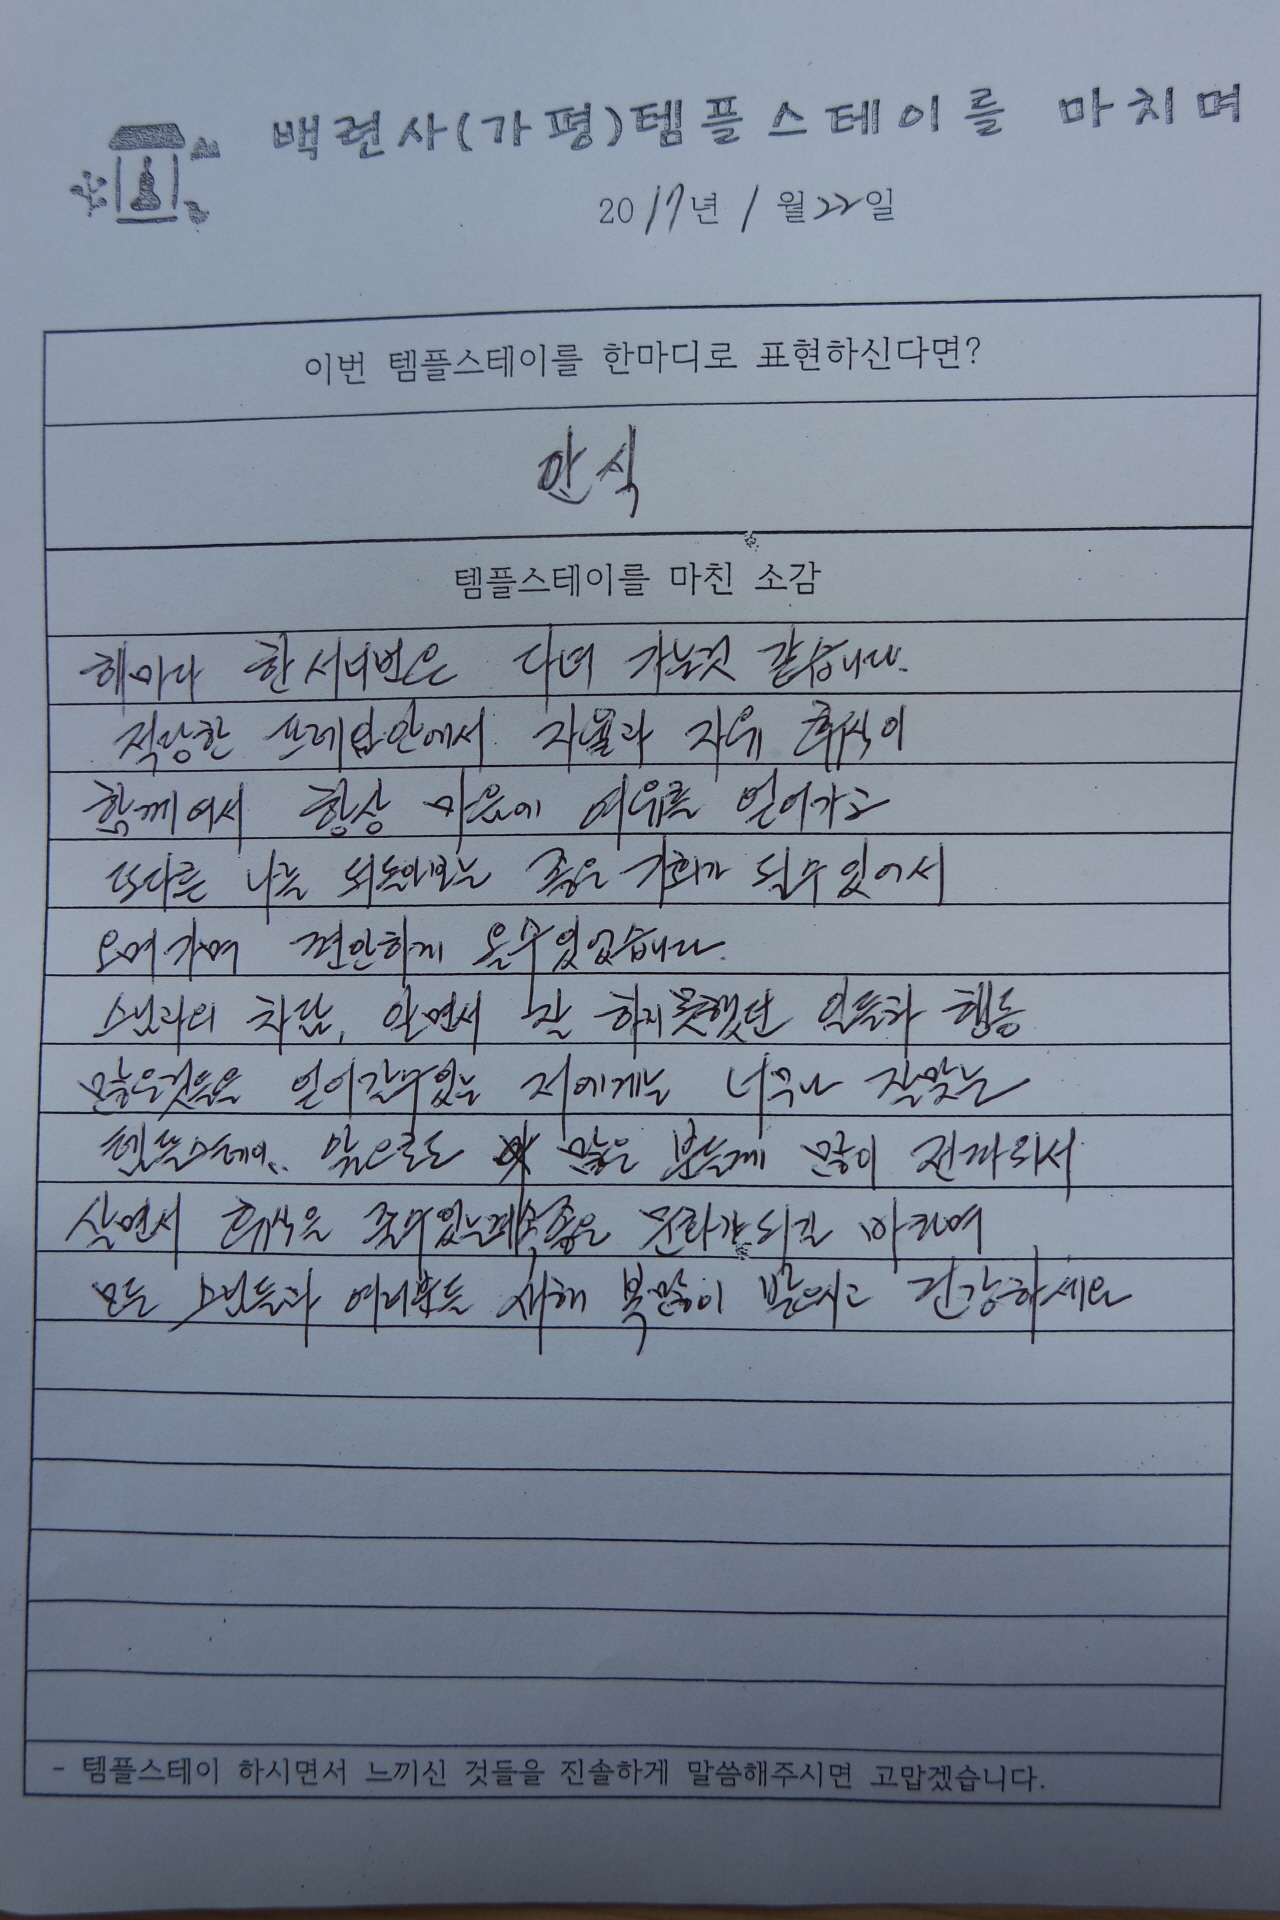 백련사(가평)템플스테이를 마치며
2017년 1월 22일
이번 템플스테이를 한마디로 표현하신다면?
안식
템플스테이를 마친 소감
해마다 한 서너번은 다녀 가는것 같습니다.
적당한 프레임안에서 자율과 자유 휴식이
함께여서 항상 마음에 여유를 얻어가고
또다른 나를 되돌아보는 좋은 기회가 될수 있어서
오며 가며 편안하게 올수 있었습니다.
스님과의 차담, 알면서 잘 하지 못했던 일들과 행동
많은것들을 얻어갈수있는 저에게는 너무나 잘맞는
템플스테이.. 앞으로도 많은 분들께 많이 전파되서
살면서 휴식을 줄수있는 좋은 문화가 되길 바라며
모든 스님들과 여러분들 새해 복많이 받으시고 건강하세요
- 템플스테이 하시면서 느끼신 것들을 진솔하게 말씀해주시면 고맙겠습니다.